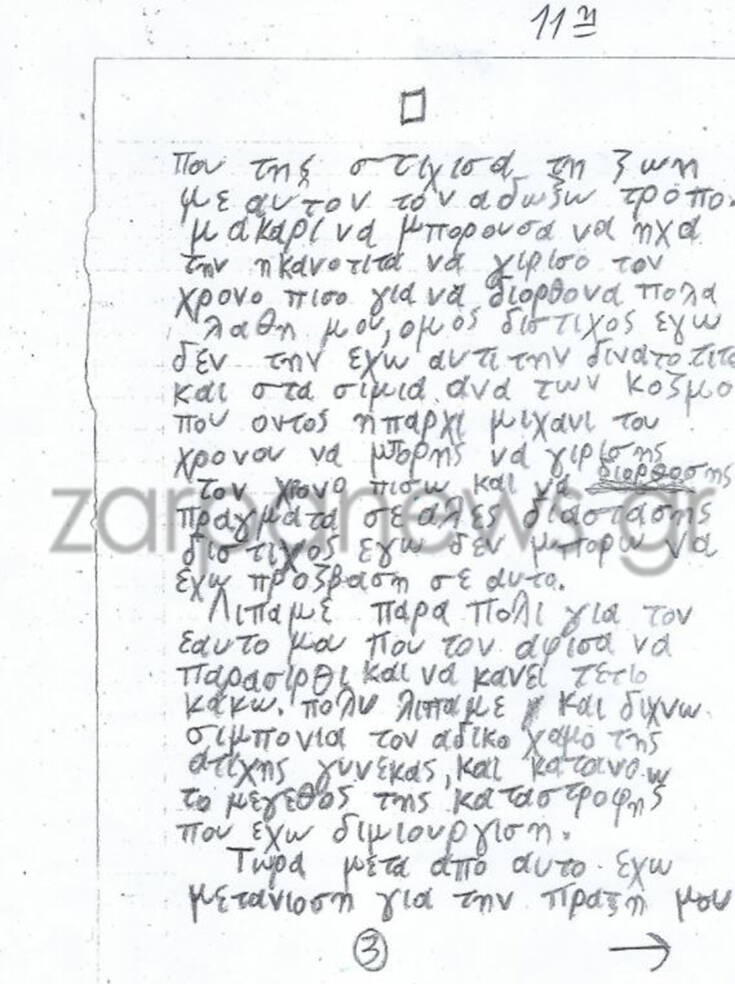 11η
που της στιχισα τη ζωη
με αυτον τον αδωξω τροπο.
μακαρι να μπορουσα να ηχα
την ηκανοτιτα να γιρισο τον
χρονο πισο για να διορθονα πολα
λαθη μου, ομος διστιχος εγω
δεν την εχω αυτι την δινατοτιτα
και στα σιμια ανα των κοζμο
που οντος ηπαρχι μιχανι του
χρονου να μπορης να γιρισης
τον χρονο πισω και να διορθοσης
zarpanews.gr
πραγματα σε αλες διαστασης
διστιχος εγω δεν μπορω να
εχω προζβαση σε αυτο.
Λιπαμε παρα πολι για τον
εαυτο μου που τον αφισα να
παρασιρθι και να κανει τετιο
κακω. πολυ λιπαμε και διχνω
σιμπονια τον αδικο χαμο της
ατιχης γυνεκας, και κατανοω
το μεγεθος της καταστροφης
που εχω διμιουργιση.
Τωρα μετα απο αυτο εχω
μετανιοση για την πραξη μου
3
→